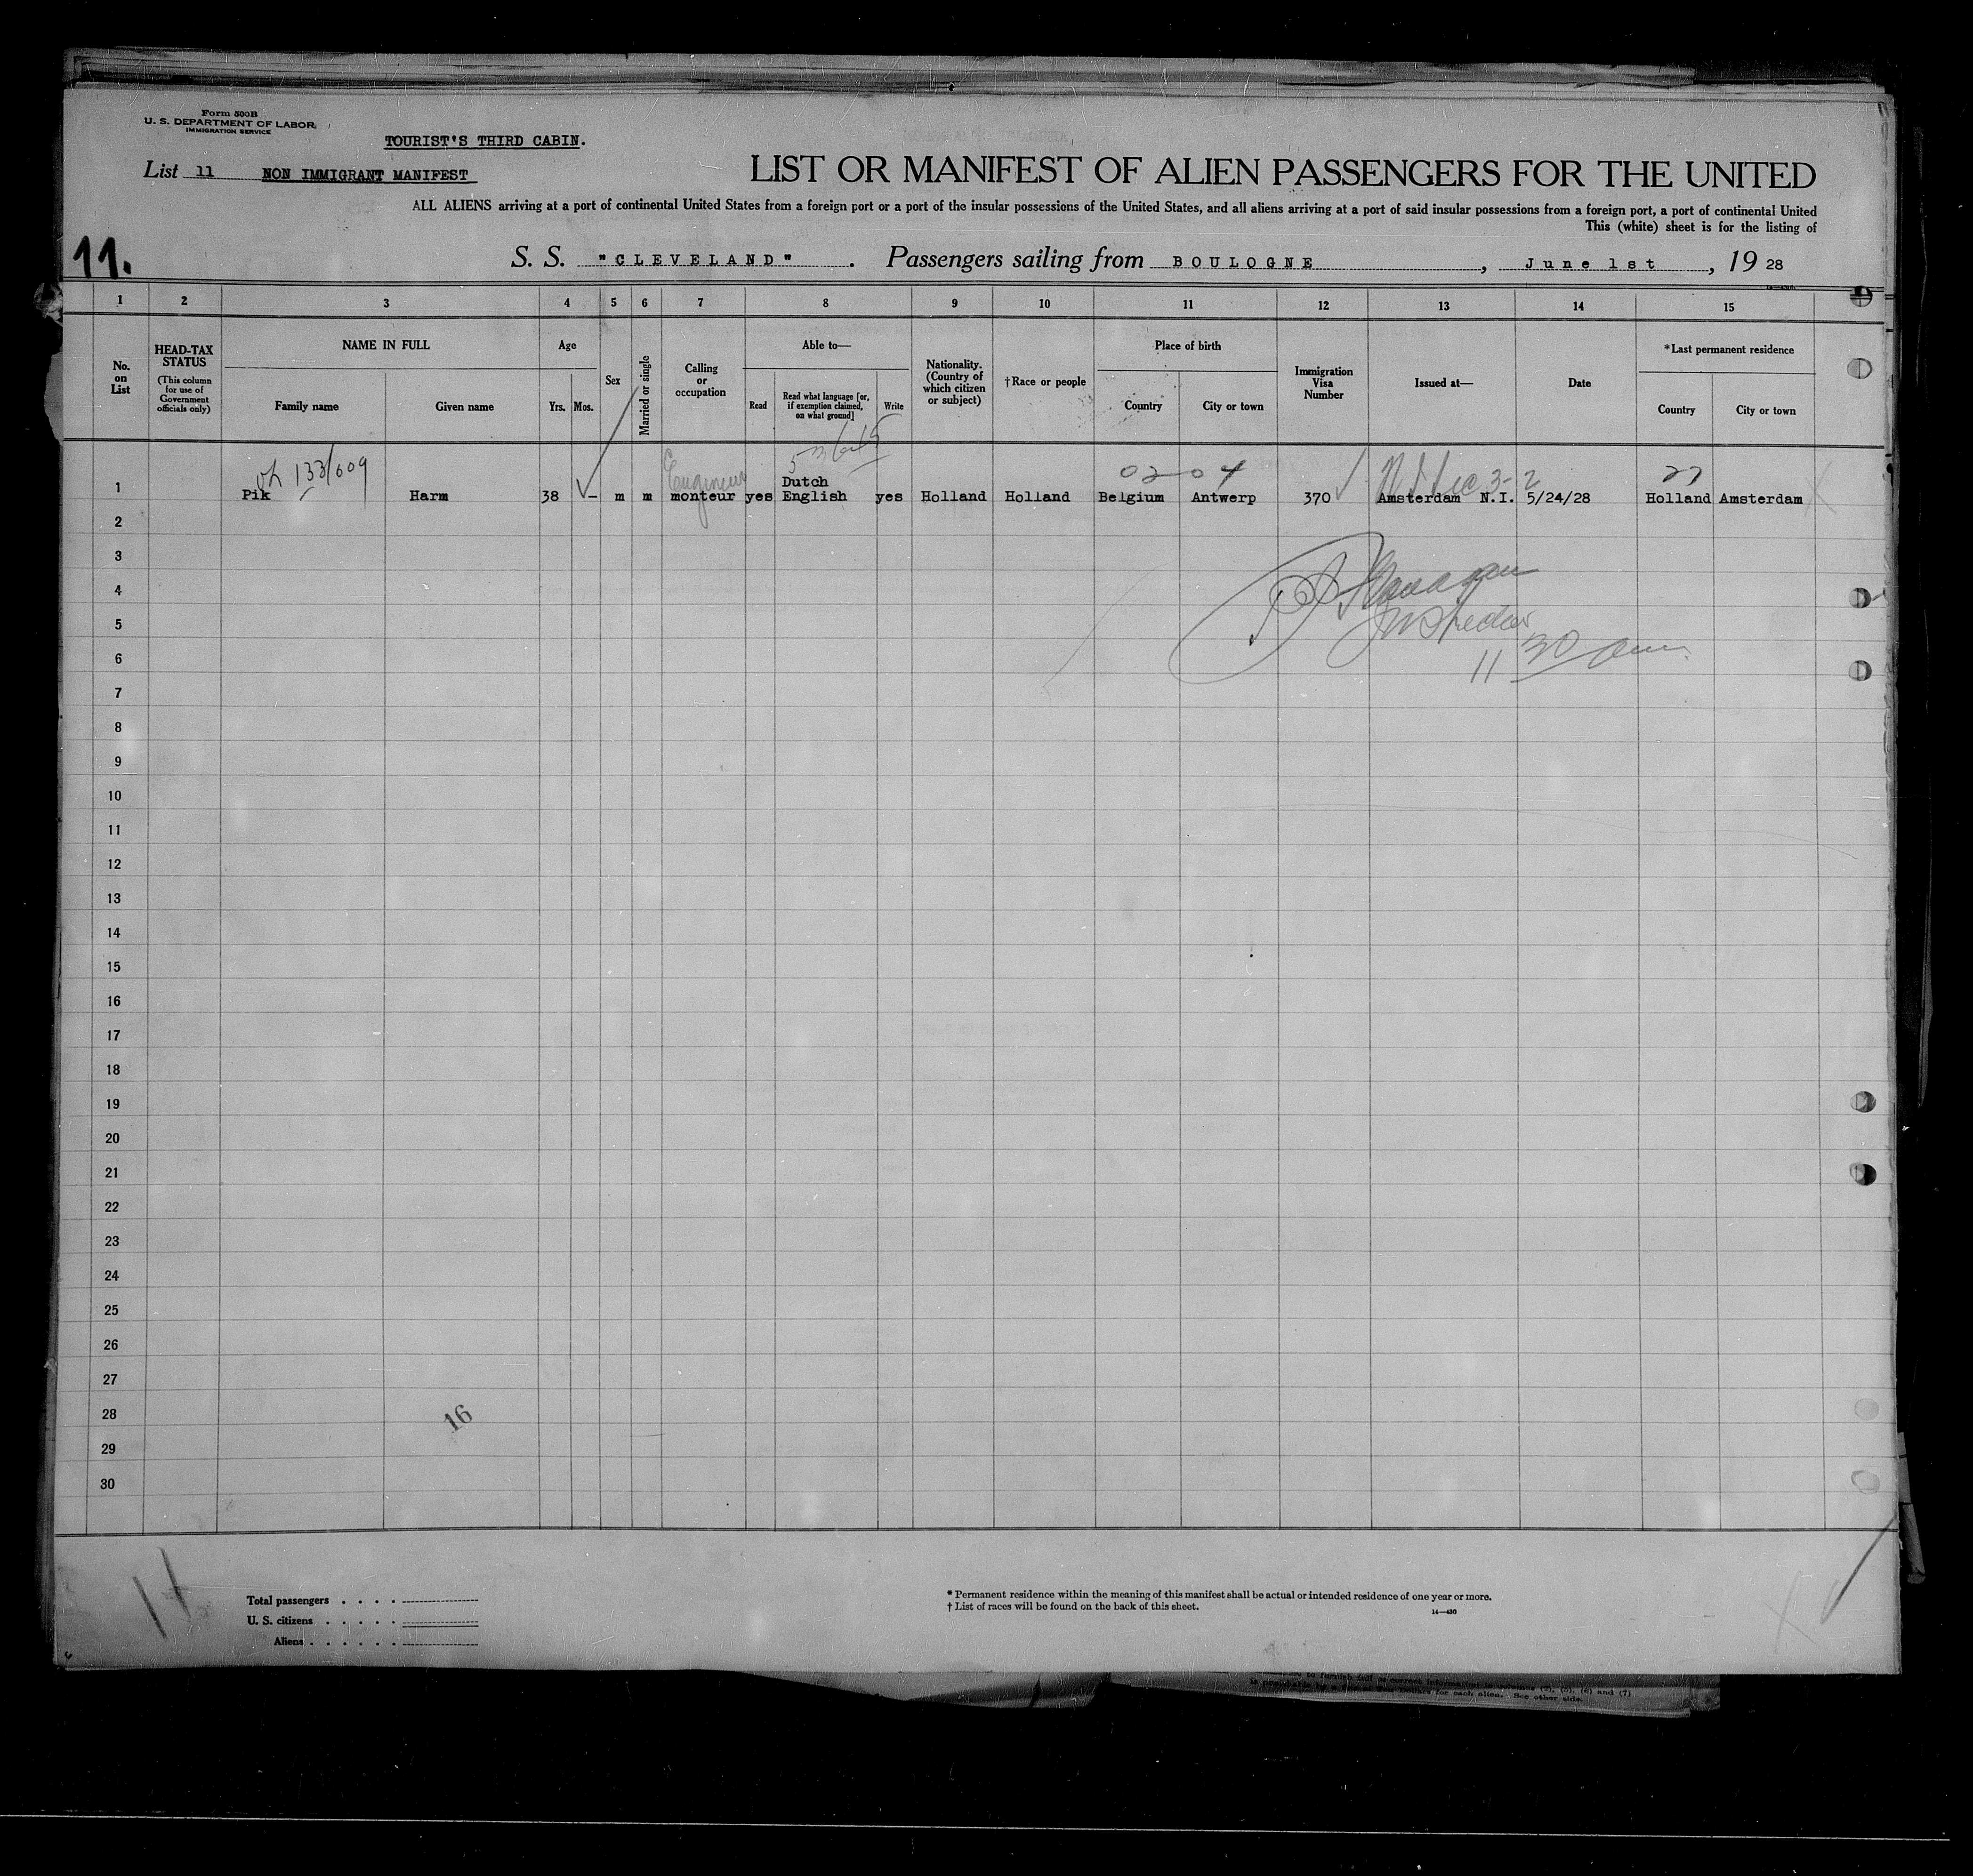 Form 500B
U. S. DEPARTMENT OF LABOR
IMMIGRATION SERVICE
TOURIST'S THIRD CABIN.
List 11 NON IMMIGRANT MANIFEST
LIST OR MANIFEST OF ALIEN PASSENGERS FOR THE UNITED
ALL ALIENS arriving at a port of continental United States from a foreign port or a port of the insular possessions of the United States, and all aliens arriving at a port of said insular possessions from a foreign port, a port of continental United
This (white) sheet is for the listing of
11.
S. S. "CLEVELAND" . Passengers sailing from BOULOGNE , June 1st , 19 28
1 2 3 4 5 6 7 8 9 10 11 12 13 14 15
No. on List
HEAD-TAX STATUS
(This column for use of Government officials only)
NAME IN FULL
Family name
Given name
Age
Yrs.
Mos.
Sex
Married or single
Calling or occupation
Able to—
Read
Read what language [or, if exemption claimed, on what ground]
Write
Nationality. (Country of which citizen or subject)
†Race or people
Place of birth
Country
City or town
Immigration Visa Number
Issued at—
Date
*Last permanent residence
Country
City or town
133/609
Engineer
02 04
27
Dutch
1 Pik Harm 38 – m m monteur yes English yes Holland Holland Belgium Antwerp 370 Amsterdam N.I. 5/24/28 Holland Amsterdam
2
3
4
5
Inspector
6
11 30 am
7
8
9
10
11
12
13
14
15
16
17
18
19
20
21
22
23
24
25
26
27
28
16
29
30
11
Total passengers . . . .
U. S. citizens . . . . .
Aliens . . . . . .
* Permanent residence within the meaning of this manifest shall be actual or intended residence of one year or more.
† List of races will be found on the back of this sheet.
14—430